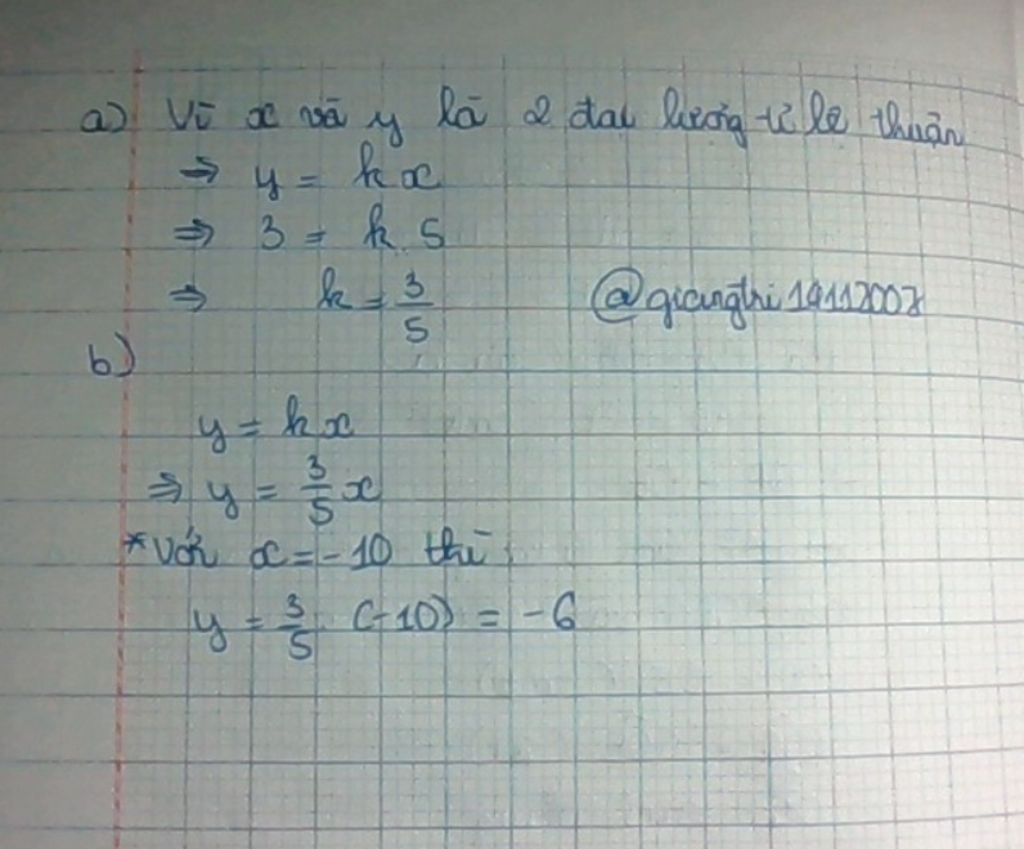 a) Vì x và y là 2 đại lượng tỉ lệ thuận
⇒ y = kx
⇒ 3 = k.5
⇒ k = 3/5 @giangthi19112007
b)
y = kx
⇒ y = 3/5 x
* Với x = -10 thì:
y = 3/5 . (-10) = -6